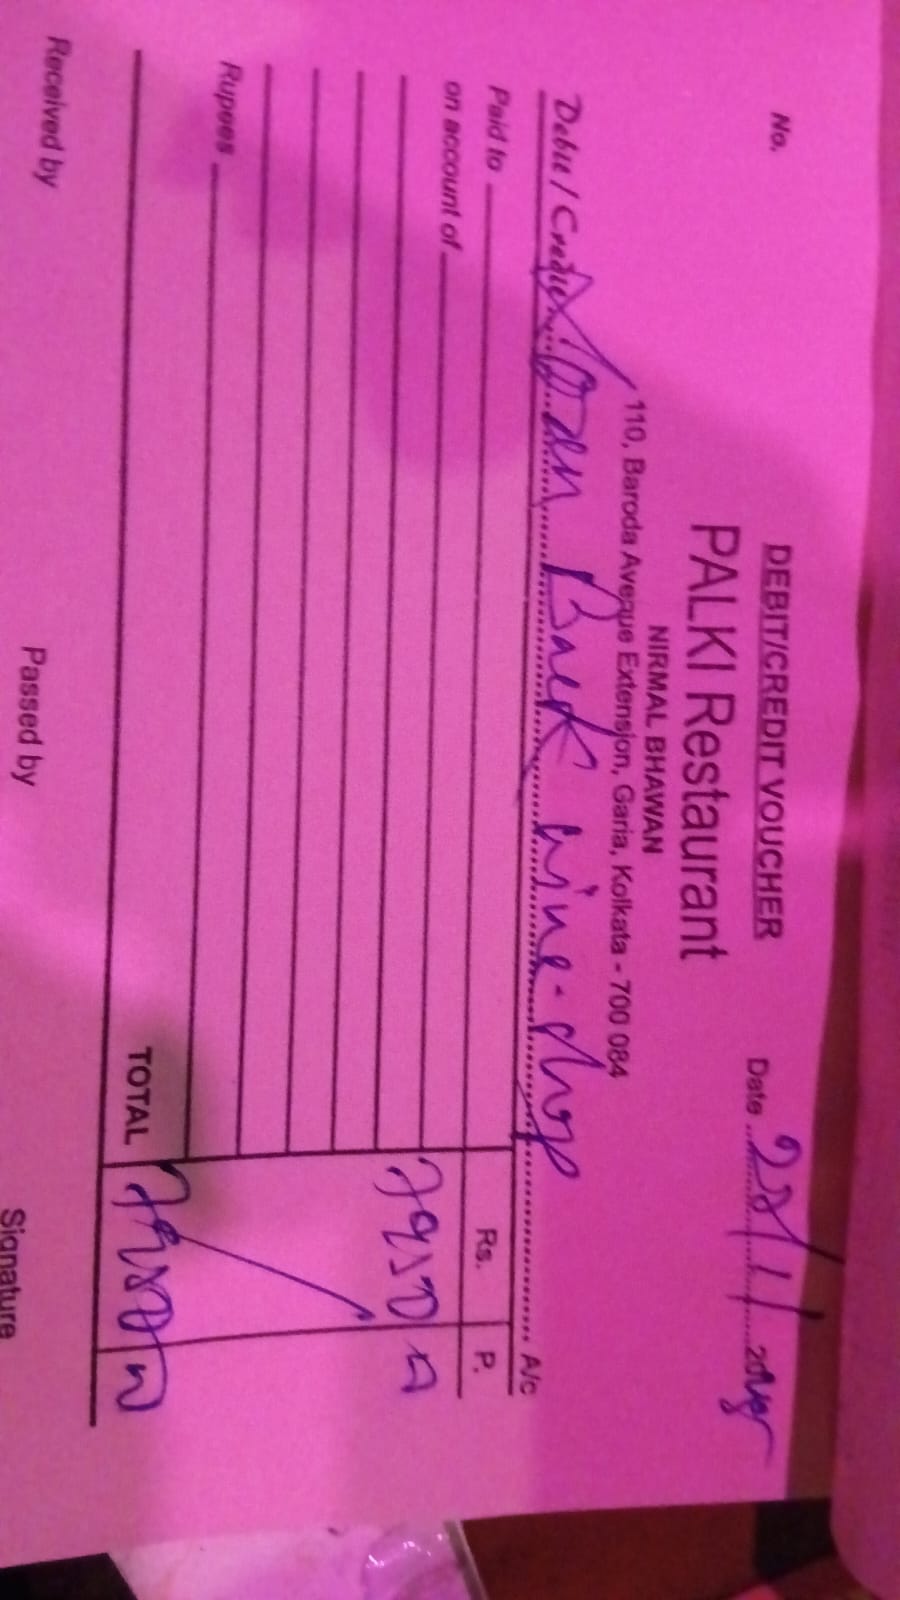 No.
DEBIT/CREDIT VOUCHER
Date 28/1/20
PALKI Restaurant
NIRMAL BHAWAN
110, Baroda Aveque Extension, Garia, Kolkata - 700 084
Debit / Credit Back wine shop A/c
Paid to
Rs. P.
on account of
Rupees
TOTAL
Received by Passed by Signature